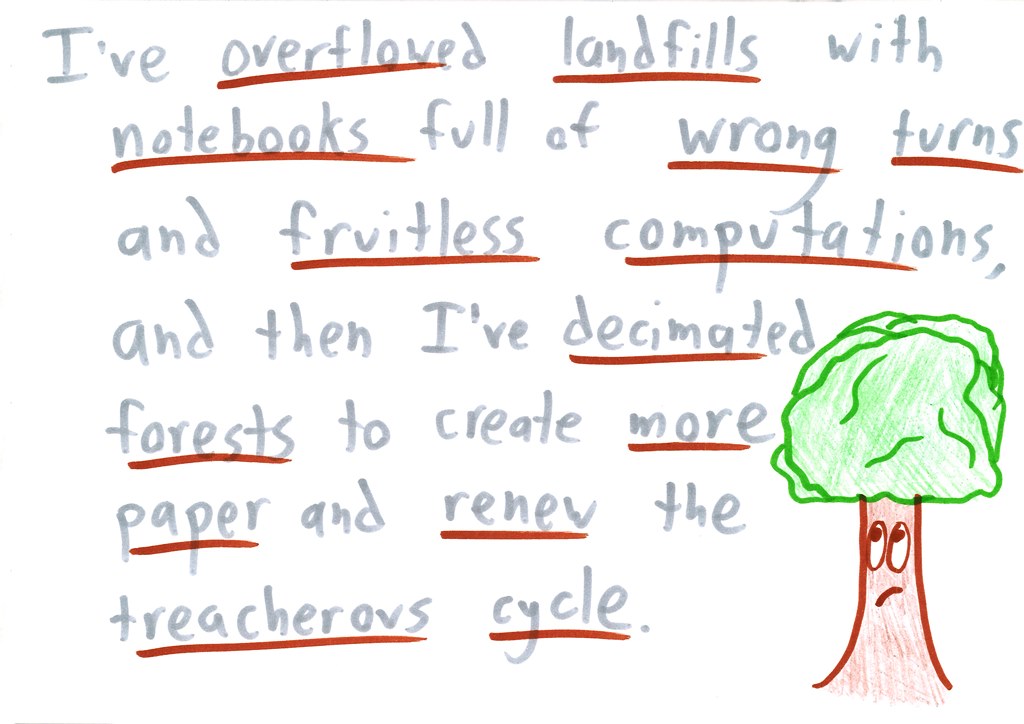 I've overflowed landfills with
notebooks full of wrong turns
and fruitless computations,
and then I've decimated
forests to create more
paper and renew the
treacherous cycle.